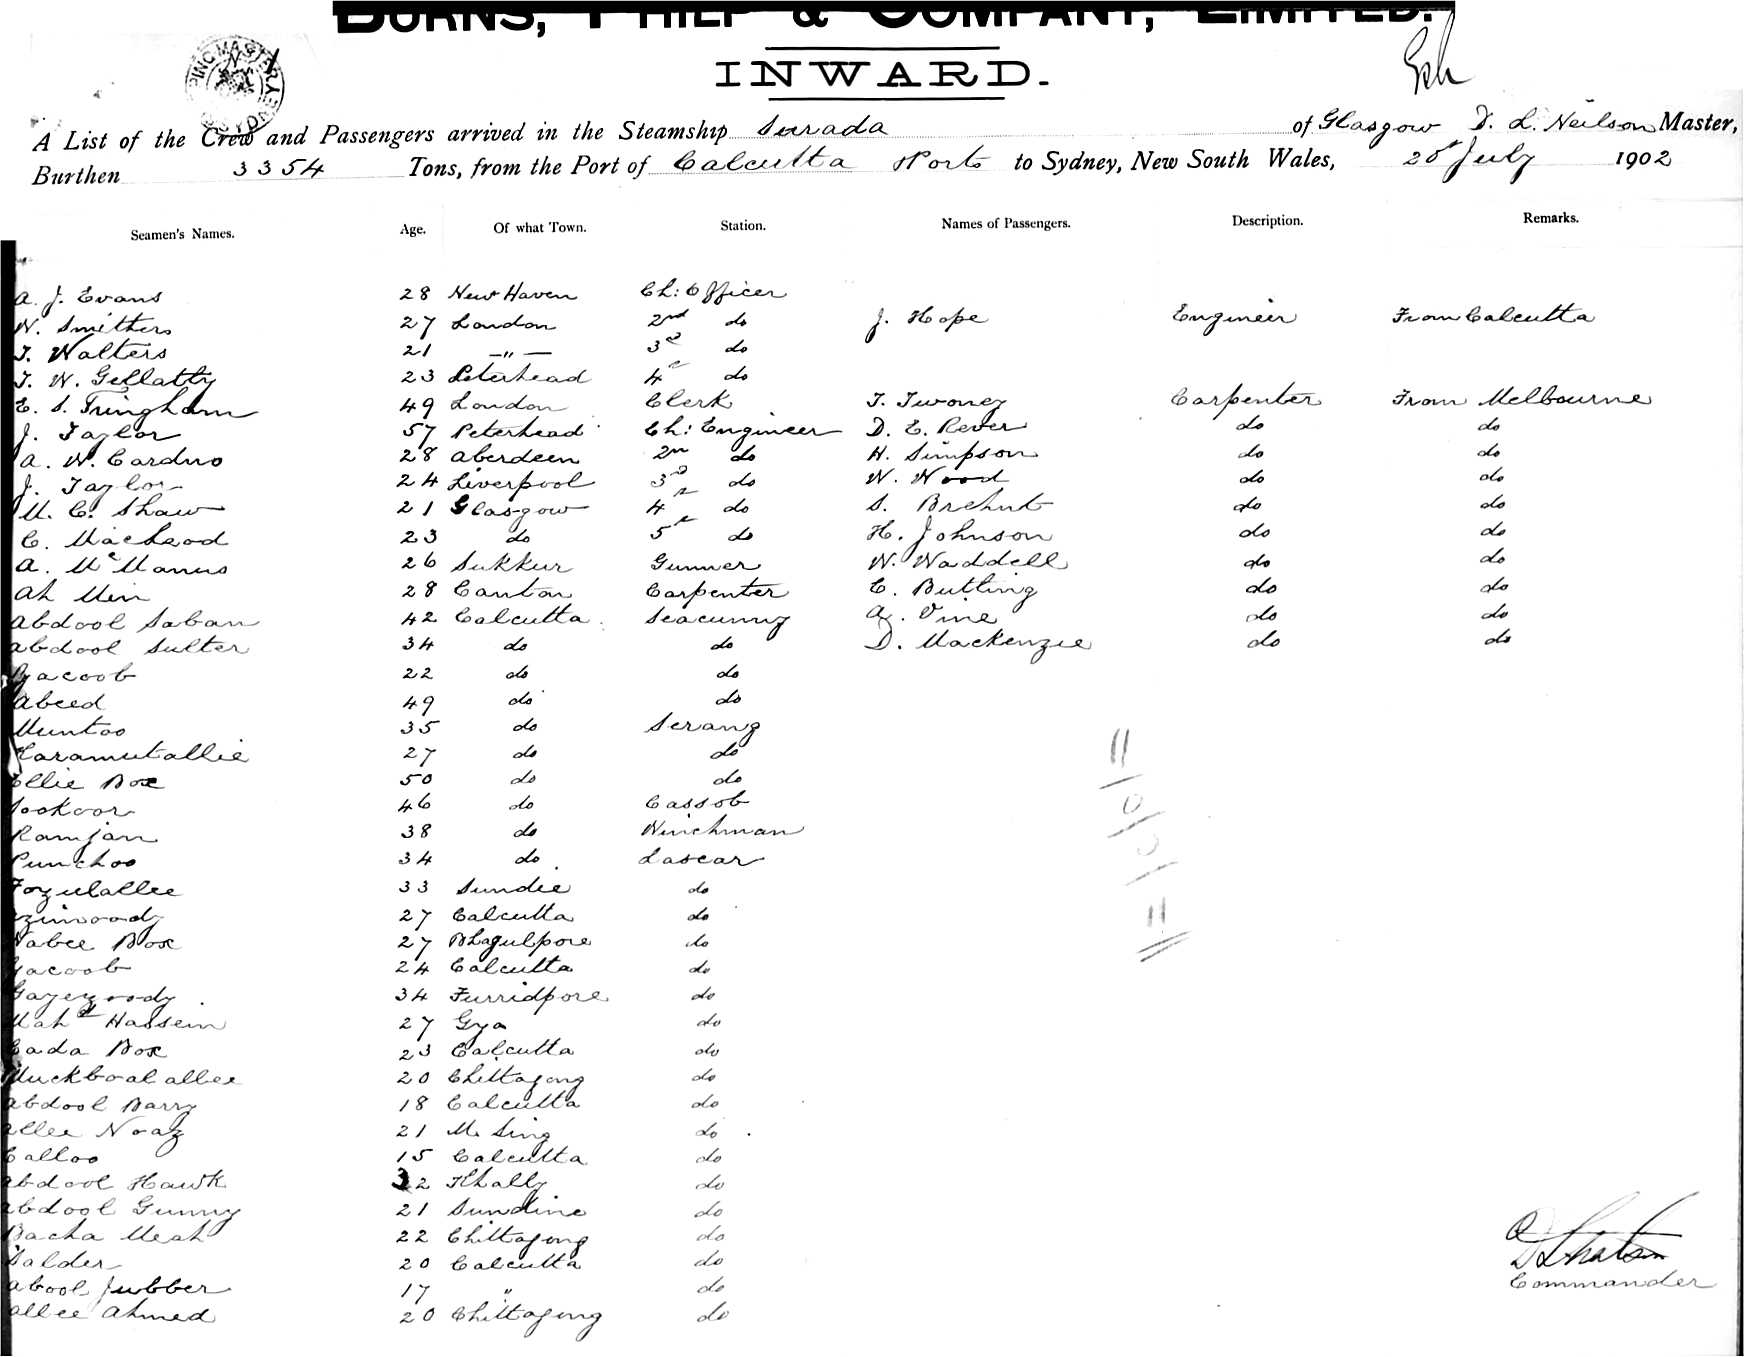 BURNS, PHILP & COMPANY, LIMITED.
INWARD.
A List of the Crew and Passengers arrived in the Steamship Surada of Glasgow D. L. Neilson Master,
Burthen 3354 Tons, from the Port of Calcutta Ports to Sydney, New South Wales, 20 July 1902
Seamen's Names. Age. Of what Town. Station. Names of Passengers. Description. Remarks.
A. J. Evans 28 New Haven Ch: Officer
W. Smithers 27 London 2nd do J. Hope Engineer From Calcutta
T. Walters 21 —"— 3rd do
T. W. Gellatly 23 Peterhead 4th do
E. S. Tringham 49 London Clerk T. Twoney Carpenter From Melbourne
J. Taylor 57 Peterhead Ch: Engineer D. E. Rever do do
A. W. Carduo 28 Aberdeen 2nd do H. Simpson do do
J. Taylor 24 Liverpool 3rd do W. Wood do do
M. C. Shaw 21 Glasgow 4th do S. Brehut do do
C. MacLeod 23 do 5th do H. Johnson do do
A. McManus 26 Sukkur Gunner W. Waddell do do
Ah Min 28 Canton Carpenter C. Butling do do
Abdool Saban 42 Calcutta Seacunny A. Vine do do
Abdool Sulter 34 do do D. Mackenzie do do
Yacoob 22 do do
Abeed 49 do do
Muntoo 35 do Serang
Karamutallie 27 do do
Ellie Box 50 do do
Sookoor 46 do Cassob
Ramjan 38 do Winchman
Punchoo 34 do Lascar
Fozulallee 33 Sundie do
Ezimoody 27 Calcutta do
Nabee Box 27 Bhagulpore do
Yacoob 24 Calcutta do
Gayezoody 34 Furridpore do
Mahd Hassein 27 Gya do
Cada Box 23 Calcutta do
Muckboolallee 20 Chittagong do
Abdool Barry 18 Calcutta do
Allee Noaz 21 M. Sing do
Calloo 15 Calcutta do
Abdool Hawk 32 Khally do
Abdool Gunny 21 Sundine do
Bacha Meah 22 Chittagong do
Salder 20 Calcutta do
Abool Jubber 17 " do
Allee Ahmed 20 Chittagong do
Commander